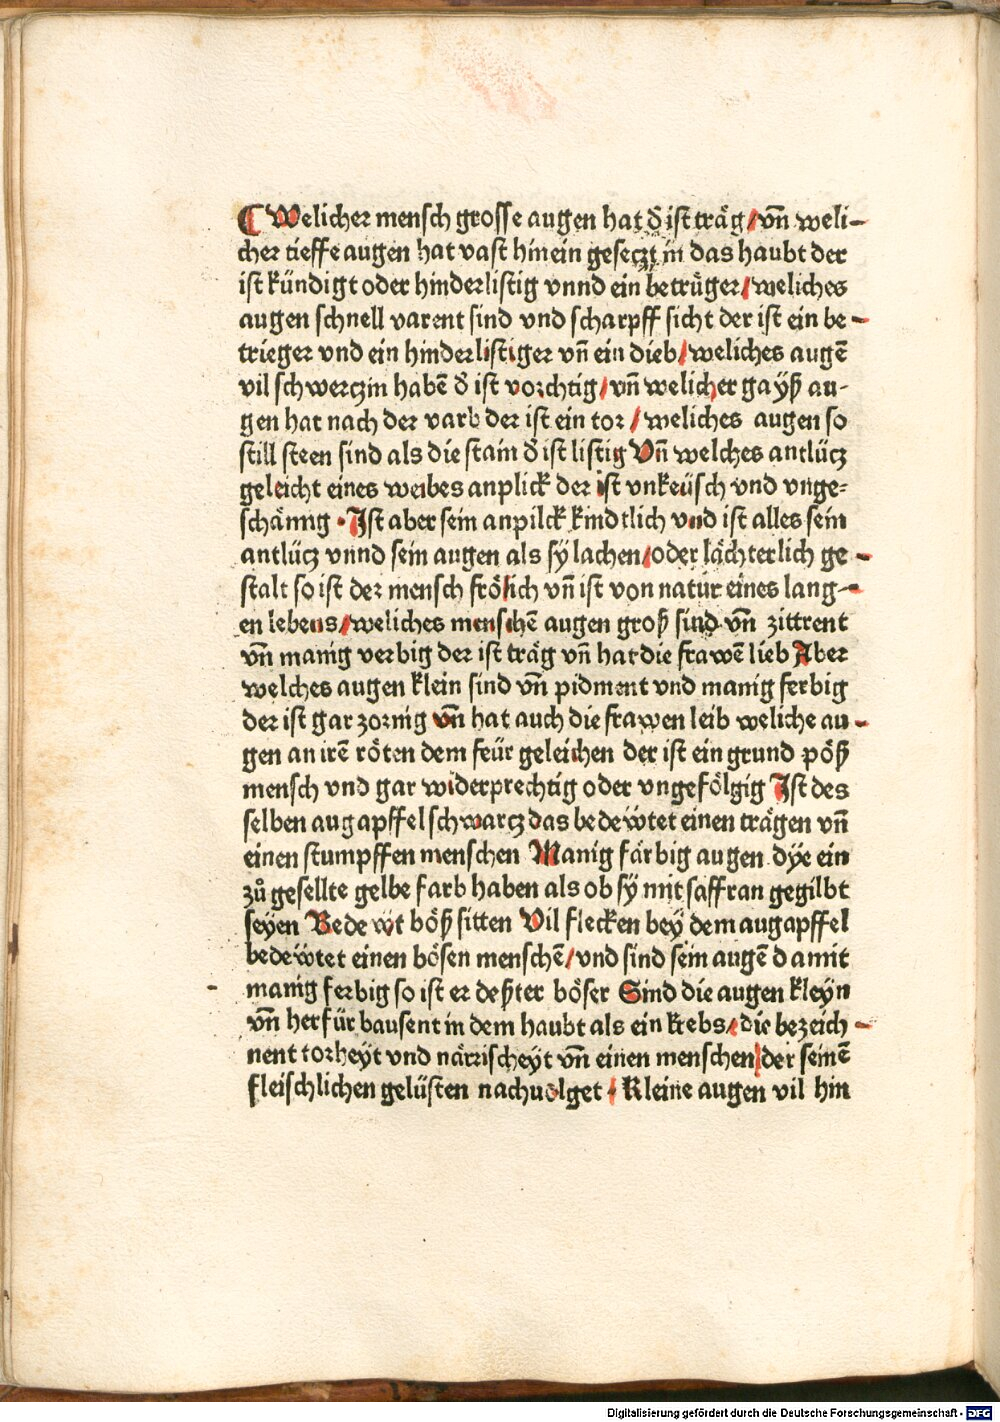 ☾ Welicher mensch grosse augen hat đ ist träg / vn̄ weli-
cher tieffe augen hat vast hinein geseczt in das haubt der
ist kündigt oder hinderlistig vnnd ein betrüger / weliches
augen schnell varent sind vnd scharpff sicht der ist ein be-
trieger vnd ein hinderlistiger vn̄ ein dieb / weliches augē
vil schwerczin habē đ ist vorchtig / vn̄ welicher gayß au-
gen hat nach der varb der ist ein tor / weliches augen so
still steen sind als die stain đ ist listig Vn̄ welches antlücz
geleicht eines weibes anplick der ist vnkeüsch vnd vnge-
schämig . Ist aber sein anpilck kindtlich vnd ist alles sein
antlücz vnnd sein augen als sÿ lachen / oder lächterlich ge-
stalt so ist der mensch frölich vn̄ ist von natur eines lang-
en lebens / weliches menschē augen groß sind vn̄ zittrent
vn̄ manig verbig der ist träg vn̄ hat die frawē lieb Aber
welches augen klein sind vn̄ pidment vnd manig ferbig
der ist gar zornig vn̄ hat auch die frawen leib weliche au-
gen an irē röten dem feür geleichen der ist ein grund pöß
mensch vnd gar widerprechtig oder vngefölgig Ist des
selben augapffel schwarcz das bedeẅtet einen trägen vn̄
einen stumpffen menschen Manig färbig augen dÿe ein
zů gesellte gelbe farb haben als ob sÿ mit saffran gegilbt
seyen Bedeẅt böß sitten Vil flecken beÿ dem augapffel
bedeẅtet einen bösen menschē / vnd sind sein augē damit
manig ferbig so ist er deßter böser Sind die augen kleÿn
vn̄ herfür bausent in dem haubt als ein krebs / die bezeich-
nent torheÿt vnd närrischeÿt vn̄ einen menschen / der seinē
fleischlichen gelüsten nachuolget / Kleine augen vil hin
Digitalisierung gefördert durch die Deutsche Forschungsgemeinschaft - DFG